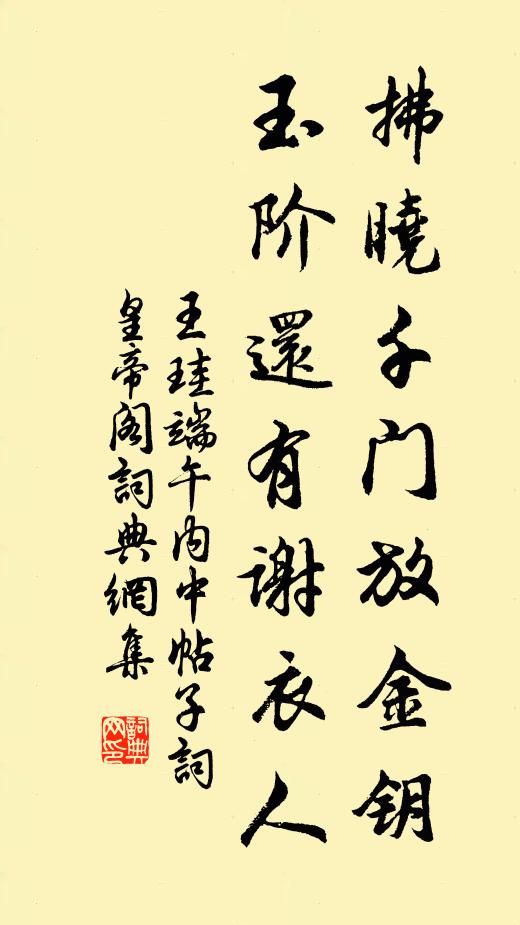 拂曉千门放金钥
玉阶還有謝衣人
王珪端午内中帖子詞
皇帝阁詞典網集
詞典网印